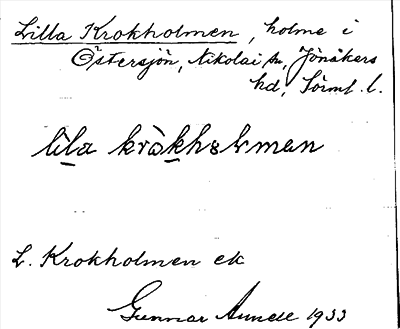 Lilla Krokholmen, holme i
Östersjön, Nikolai sn, Jönåkers
hd, Sörml. l.
lila kråkholman
L. Krokholmen ek
Gunnar Aunell 1933